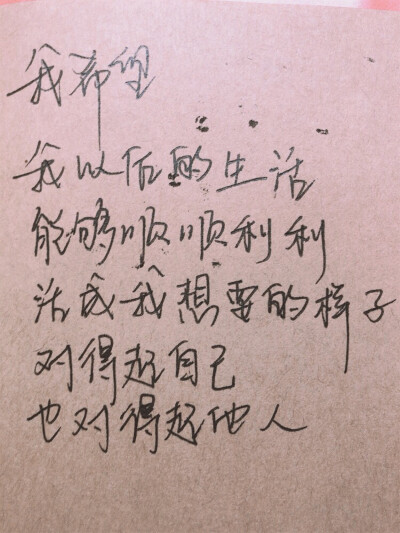 我希望
我以后的生活
能够顺顺利利
活成我想要的样子
对得起自己
也对得起他人